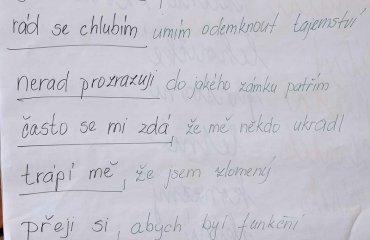 rád se chlubím umím odemknout tajemství
nerad prozrazuji do jakého zámku patřím
často se mi zdá, že mě někdo ukradl
trápí mě, že jsem zlomený
přeji si, abych byl funkční